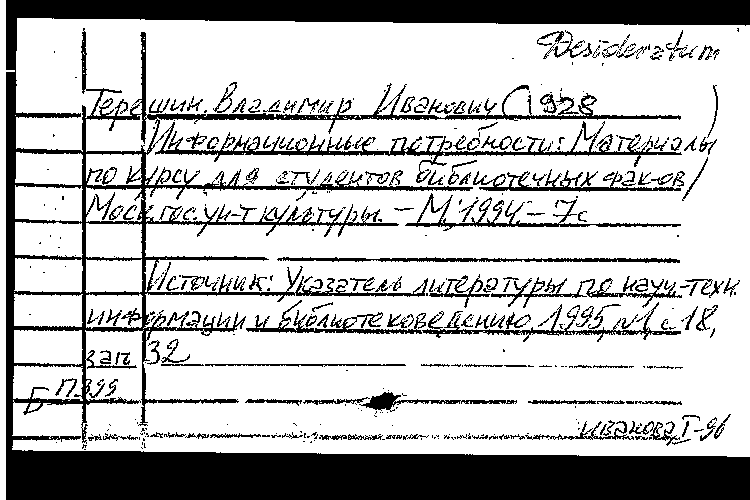 Desideratum
Терешин, Владимир Иванович (1928      )
Информационные потребности: Материалы
по курсу для студентов библиотечных фак-ов /
Моск. гос. ун-т культуры. – М., 1994 – 7с
Источник: Указатель литературы по науч.-техн.
информации и библиотековедению, 1995, №1, с 18,
зап. 32
Б П.399
Иванова, I-96